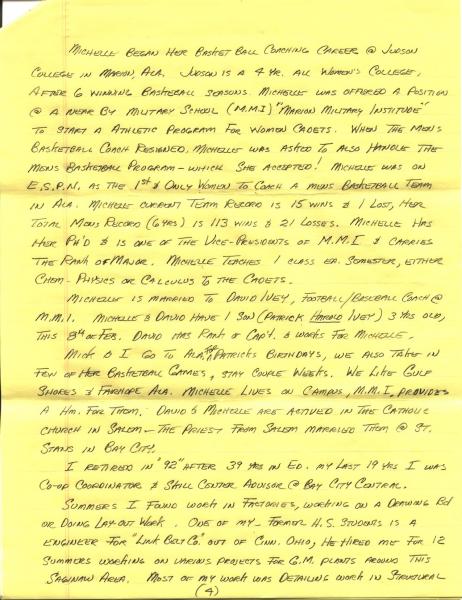 Michelle Began Her Basketball Coaching Career @ Judson
College in Marion, Ala. Judson is a 4 yr. all Women's College,
After 6 Winning Basketball Seasons. Michelle was offered a Position
@ a near By Military School (M.M.I) "Marion Military Institude"
To start a Athletic Program For Women Cadets. When the Mens
Basketball Coach Resigned, Michelle was Asked To Also Handle the
Mens Basketball Program - which She Accepted! Michelle was on
E.S.P.N. as the 1st & Only Women to Coach a mens Basketball Team
in Ala. Michelle current Team Record is 15 wins & 1 Lost, Her
Total Mens Record (6 yrs) is 113 wins & 21 Losses. Michelle Has
Her Ph'D & is one of the Vice-Presidents of M.M.I & carries
The Rank of Major. Michelle Teaches 1 class ea. Semester, either
Chem - Physics or Calculus to the Cadets.
Michelle is married to David Ivey, Football/Baseball Coach @
M.M.I. Michelle & David Have 1 Son (Patrick Harold Ivey) 3 yrs old,
This 8th of Feb. David has Rank of Capt. & works for Michelle.
Mick & I Go To Ala, For Patricks Birthdays, we also Take in
Few of Her Basketball Games, & stay Couple Weeks. We Like Gulf
Shores & Fairhope Ala. Michelle Lives on Campus, M.M.I, provides
A Hm. For Them. David & Michelle are actived in the Catholic
Church in Salem - The Priest From Salem married Them @ St.
Stans in Bay City.
I Retired in "92" After 39 yrs in Ed. my Last 19 yrs I was
Co-op Coordinator & Skill Center Advisor @ Bay City Central.
Summers I found work in Factories, working on a Drawing Bd
or Doing Lay-out Work. One of my - Former H.S. Students is a
Engineer For "Link Belt Co." out of Cinn. Ohio, He Hired me For 12
Summers working on various Projects For G.M. Plants around This
Saginaw Area. Most of my work was Detailing work in Structural
(4)